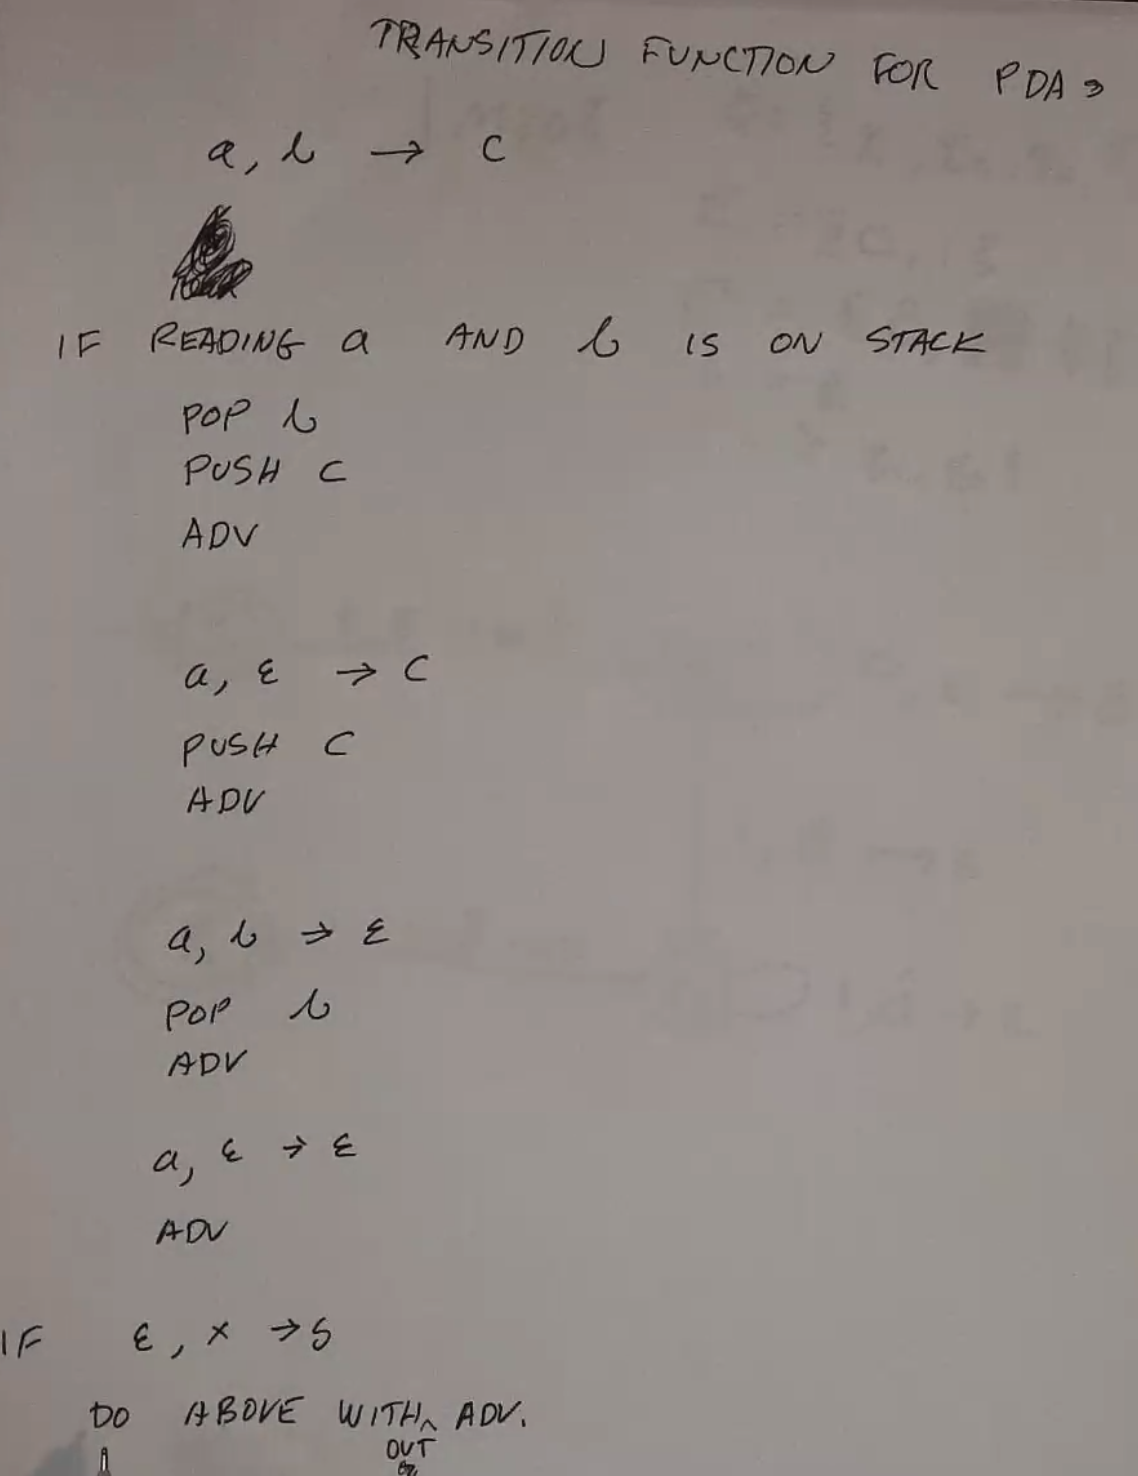 TRANSITION FUNCTION FOR PDAs
a, b → c
IF READING a AND b IS ON STACK
POP b
PUSH c
ADV
a, ε → c
PUSH c
ADV
a, b → ε
POP b
ADV
a, ε → ε
ADV
IF ε, x → s
DO ABOVE WITH^ ADV.
OUT